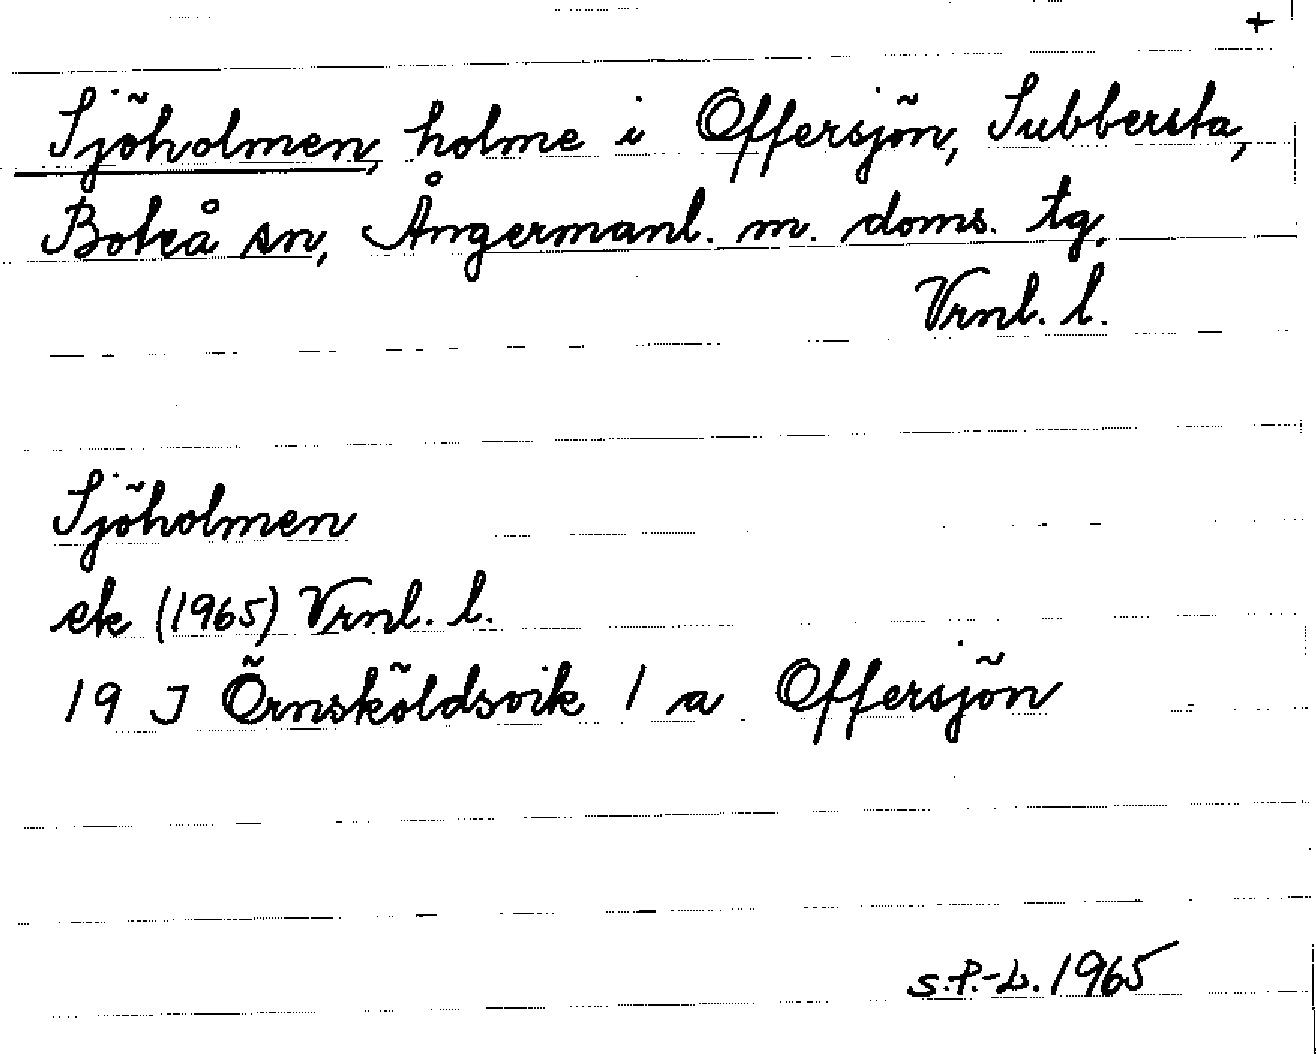 +
Sjöholmen, holme i Offersjön, Subbersta,
Boteå sn, Ångermanl. m. doms. tg.
Vrnl. l.
Sjöholmen
ek (1965) Vrnl. l.
19 J Örnsköldsvik 1 a Offersjön
S.P.-L. 1965